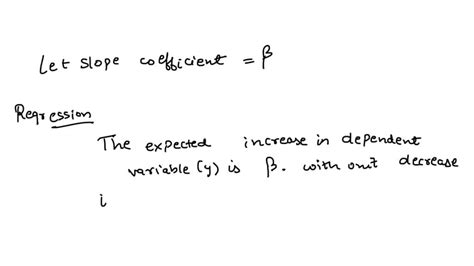 Let slope coefficient = β
Regression
The expected increase in dependent
variable (y) is β. with unit decrease
i